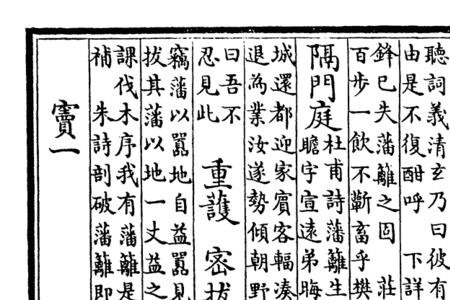 聽詞義清玄乃曰彼有
由是不復酣呼 下詳
鋒巳失藩籬之固 莊
百步一飲不蘄畜乎樊
隔門庭
杜甫詩藩籬生
瞻字宣遠弟晦
城還都迎家賓客輻湊
退為業汝遂勢傾朝野
曰吾不
忍見此
重護 密拔
竊藩以囂地自益囂見
拔其藩以地一丈益之
課伐木序我有藩籬是
補 朱詩剖破藩籬即
竇一